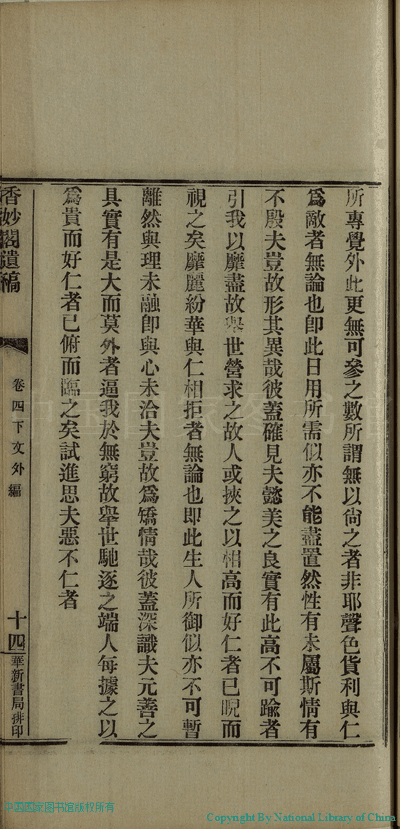 所專覺外此更無可參之數所謂無以尙之者非耶聲色貨利與仁
爲敵者無論也卽此日用所需似亦不能盡置然性有未屬斯情有
不殷夫豈故形其異哉彼蓋確見夫懿美之良實有此高不可踰者
引我以靡盡故舉世營求之故人或挾之以相高而好仁者已睨而
視之矣靡麗紛華與仁相拒者無論也卽此生人所御似亦不可暫
離然與理未融卽與心未洽夫豈故爲矯情哉彼蓋深識夫元善之
具實有是大而莫外者逼我於無窮故舉世馳逐之端人每據之以
爲貴而好仁者已俯而臨之矣試進思夫惡不仁者
香妙閣遺稿
卷四下文外編
十四
華新書局排印
中国国家图书馆版权所有
Copyright By National Library of China